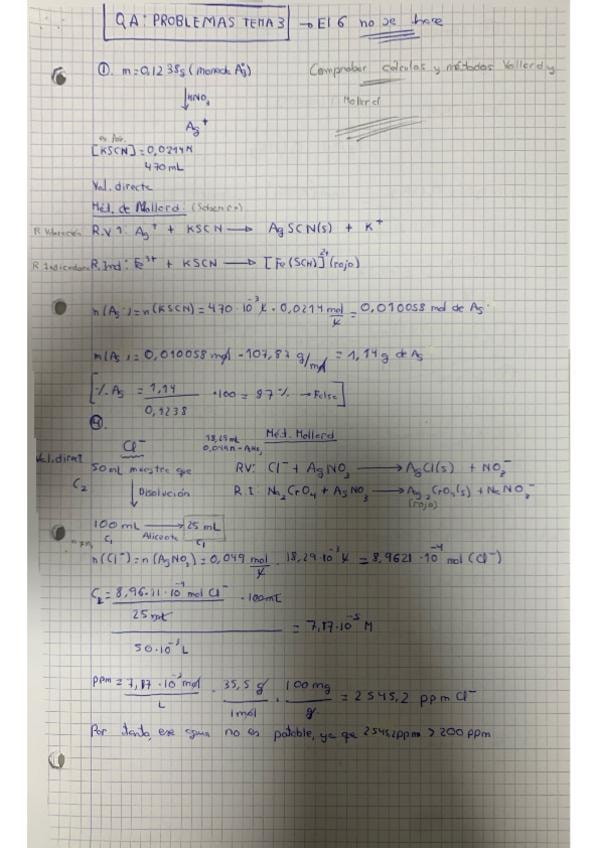 QA: PROBLEMAS TEMA 3 → El 6 no se hace
①. m=0,1238g (moneda Ag) Comprobar cálculos y métodos Vollard y
↓HNO₃ Mollard
Ag⁺
[KSCN]=0,0214M
470mL
Val. directe
Mét. de Mollard:
R.V1: Ag⁺ + KSCN → AgSCN(s) + K⁺
R. Indicadora R.Ind: Fe³⁺ + KSCN → [Fe(SCN)]²⁺ (rojo)
n(Ag⁺)=n(KSCN)=470·10⁻³ L · 0,0214 mol/L = 0,010058 mol de Ag⁺
m(Ag⁺)=0,010058 mol · 107,87 g/mol = 1,14g de Ag
[% Ag = 1,14/0,1238 ·100 = 97% → False]
④.
Cl⁻ Mét. Mollard
Val. direct
50mL muestra que RV: Cl⁻ + AgNO₃ → AgCl(s) + NO₃⁻
C₂ ↓Disolución R.I: Na₂CrO₄ + AgNO₃ → Ag₂CrO₄(s) + NaNO₃⁻
(rojo)
100mL → 25mL
C₁ Alicuota C₁
n(Cl⁻)=n(AgNO₃)=0,049 mol/L · 18,29·10⁻³ L = 8,9621·10⁻⁴ mol (Cl⁻)
C₂= 8,96·10⁻⁴ mol Cl⁻ · 100mL
25mL
= 7,17·10⁻⁵ M
50·10⁻³ L
ppm = 7,17·10⁻² mol/L · 35,5 g/1mol · 100mg/g = 2545,2 ppm Cl⁻
Por tanto, ese agua no es potable, ya que 2545,2ppm > 200 ppm